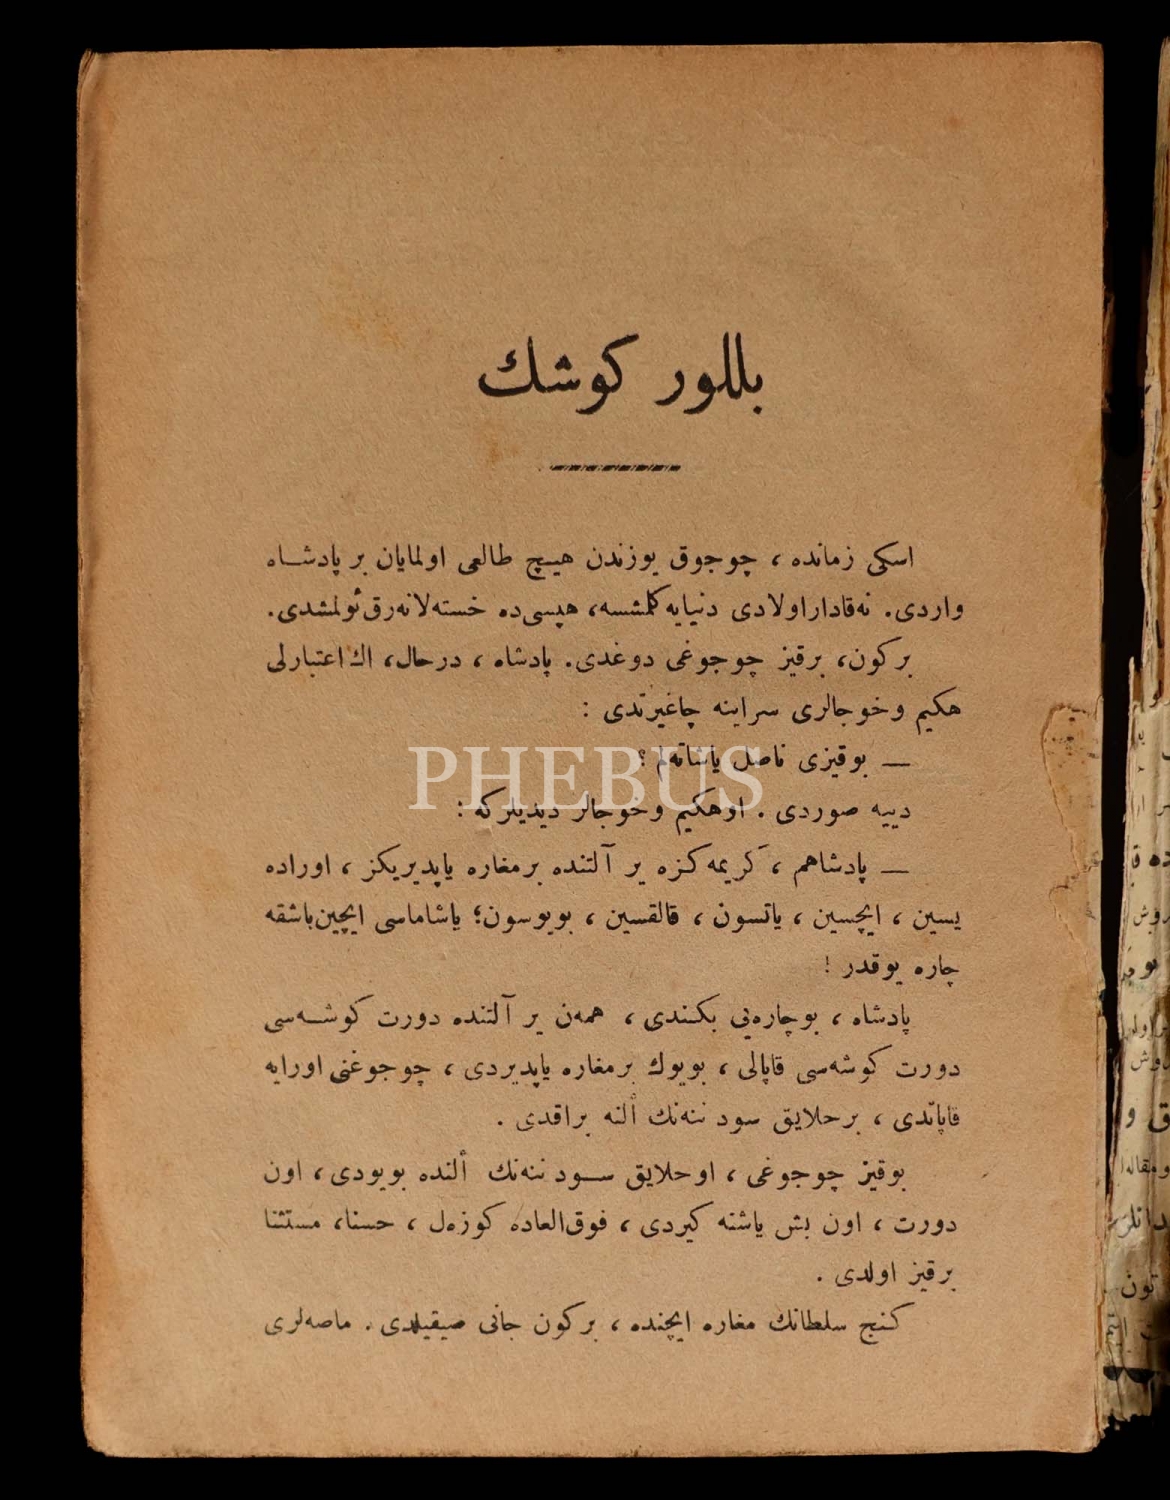 بللور كوشك
اسكى زمانده ، چوجوق يوزندن هيچ طالعى اولمايان بر پادشاه
واردى. نه‌قادار اولادى دنيايه كلمشسه، هپسى‌ده خسته‌لانه‌رق ئولمشدى.
بركون، برقيز چوجوغى دوغدى. پادشاه ، درحال، اك اعتبارلى
هكيم وخوجالرى سراينه چاغيرتدى :
— بوقيزى ناصل ياشاته‌لم ؟
دييه صوردى . اوهكيم وخوجالر ديديلركه :
— پادشاهم ، كريمه‌كزه ير آلتنده برمغاره ياپديريكز ، اوراده
يسين ، ايچسين ، ياتسون ، قالقسين ، بويوسون؛ ياشاماسى ايچين‌باشقه
چاره يوقدر !
پادشاه ، بوچاره‌يى بكندى ، همه‌ن ير آلتنده دورت كوشه‌سى
دورت كوشه‌سى قاپالى ، بويوك برمغاره ياپديردى ، چوجوغنى اورايه
قاپاتدى ، برحلايق سود ننه‌نك ألنه براقدى .
بوقيز چوجوغى ، اوحلايق سود ننه‌نك ألنده بويودى ، اون
دورت ، اون بش ياشنه كيردى ، فوق‌العاده كوزه‌ل ، حسنا، مستثنا
برقيز اولدى .
كنج سلطانك مغاره ايچنده ، بركون جانى صيقيلدى . ماصه‌لرى
PHEBUS